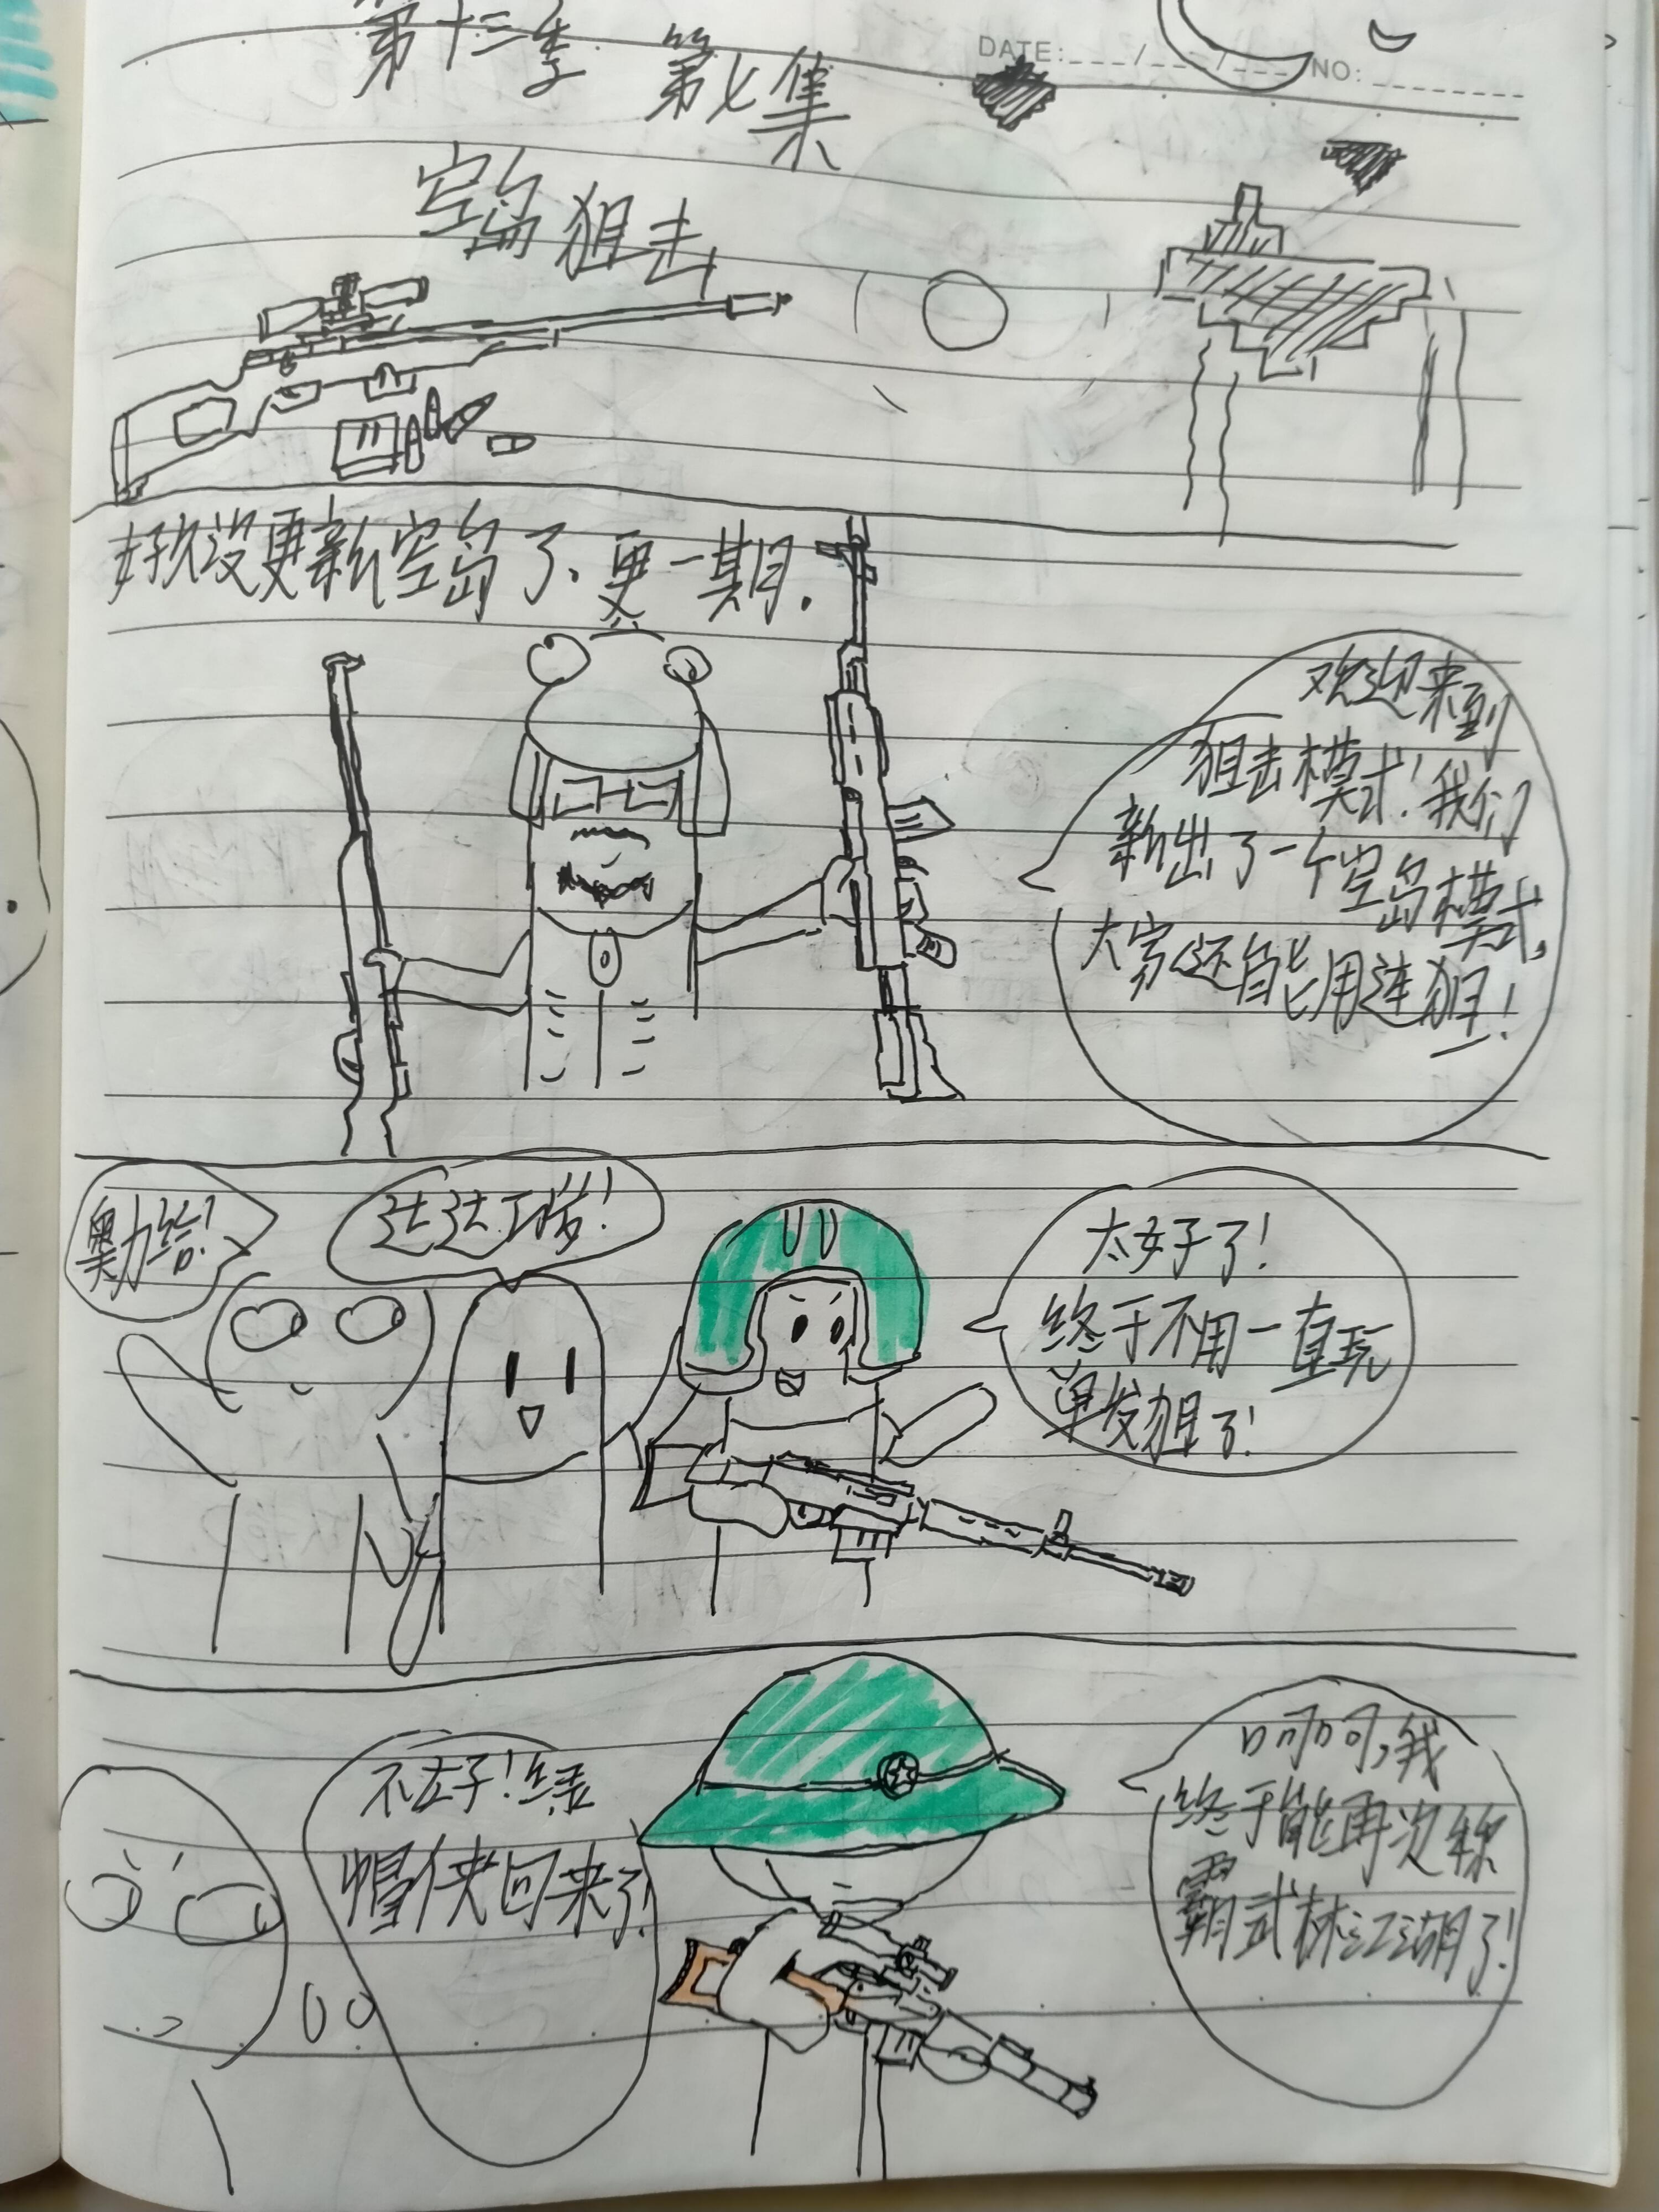 第十三季 第七集
DATE: ___/___/___ NO: ________
空岛狙击
好久没更新空岛了.更一期.
欢迎来到
狙击模式!我们
新出了一个空岛模式,
大家还能用连狙!
奥力给!
达达工
太好了!
终于不用一直玩
单发狙了!
不左子!绿
帽侠回来了!
呵呵,我
终于能再次称
霸武林江湖了!